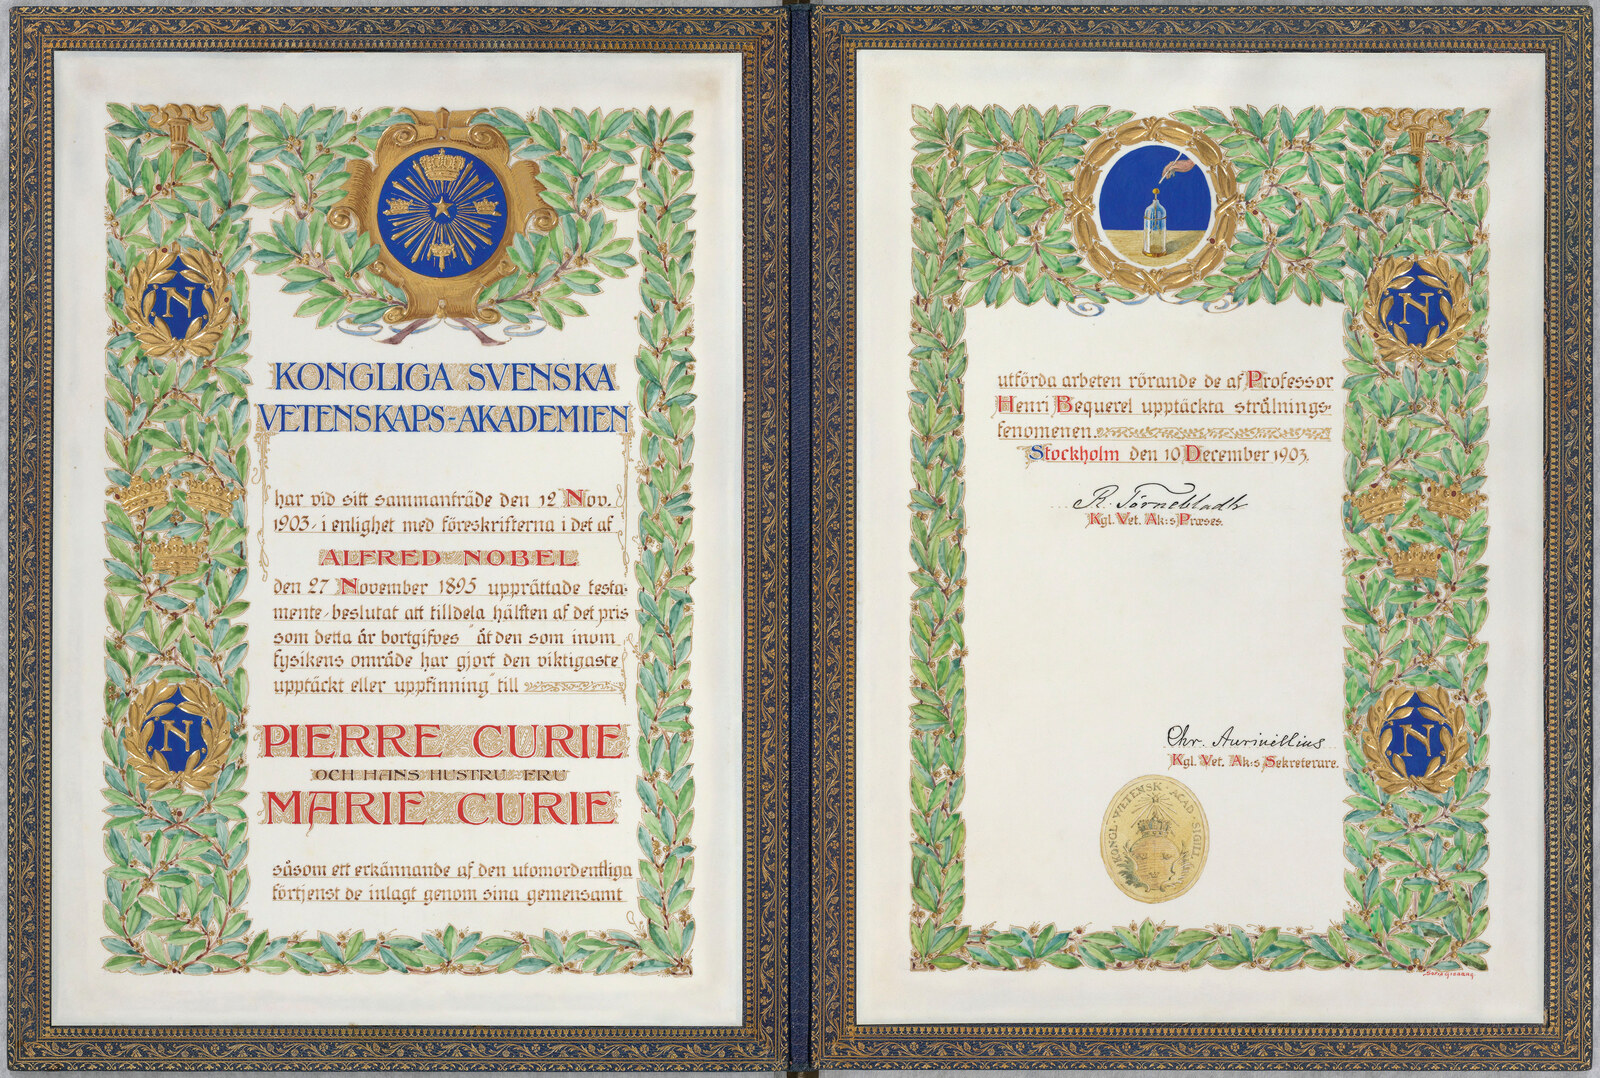 N
N
KONGLIGA SVENSKA
VETENSKAPS-AKADEMIEN
har vid sitt sammanträde den 12 Nov.
1903, i enlighet med föreskrifterna i det af
ALFRED NOBEL
den 27 November 1895 upprättade testa-
mente, beslutat att tilldela hälften af det pris
som detta år bortgifves "åt den som inom
fysikens område har gjort den viktigaste
upptäckt eller uppfinning" till
PIERRE CURIE
OCH HANS HUSTRU FRU
MARIE CURIE
såsom ett erkännande af den utomordentliga
förtjenst de inlagt genom sina gemensamt
N
N
utförda arbeten rörande de af Professor
Henri Bequerel upptäckta strålnings-
fenomenen.
Stockholm den 10 December 1903.
R. Törnebladh
Kgl. Vet. Ak:s Præses.
Chr. Aurivillius
Kgl. Vet. Ak:s Sekreterare.
KONGL. VETENSK. ACAD. SIGILL